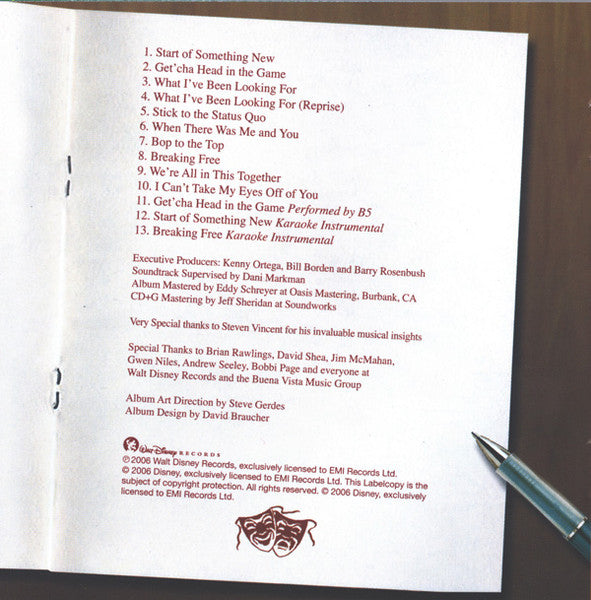 1. Start of Something New
2. Get'cha Head in the Game
3. What I've Been Looking For
4. What I've Been Looking For (Reprise)
5. Stick to the Status Quo
6. When There Was Me and You
7. Bop to the Top
8. Breaking Free
9. We're All in This Together
10. I Can't Take My Eyes Off of You
11. Get'cha Head in the Game Performed by B5
12. Start of Something New Karaoke Instrumental
13. Breaking Free Karaoke Instrumental
Executive Producers: Kenny Ortega, Bill Borden and Barry Rosenbush
Soundtrack Supervised by Dani Markman
Album Mastered by Eddy Schreyer at Oasis Mastering, Burbank, CA
CD+G Mastering by Jeff Sheridan at Soundworks
Very Special thanks to Steven Vincent for his invaluable musical insights
Special Thanks to Brian Rawlings, David Shea, Jim McMahan,
Gwen Niles, Andrew Seeley, Bobbi Page and everyone at
Walt Disney Records and the Buena Vista Music Group
Album Art Direction by Steve Gerdes
Album Design by David Braucher
Walt Disney RECORDS
℗ 2006 Walt Disney Records, exclusively licensed to EMI Records Ltd.
© 2006 Disney, exclusively licensed to EMI Records Ltd. This Labelcopy is the
subject of copyright protection. All rights reserved. © 2006 Disney, exclusively
licensed to EMI Records Ltd.